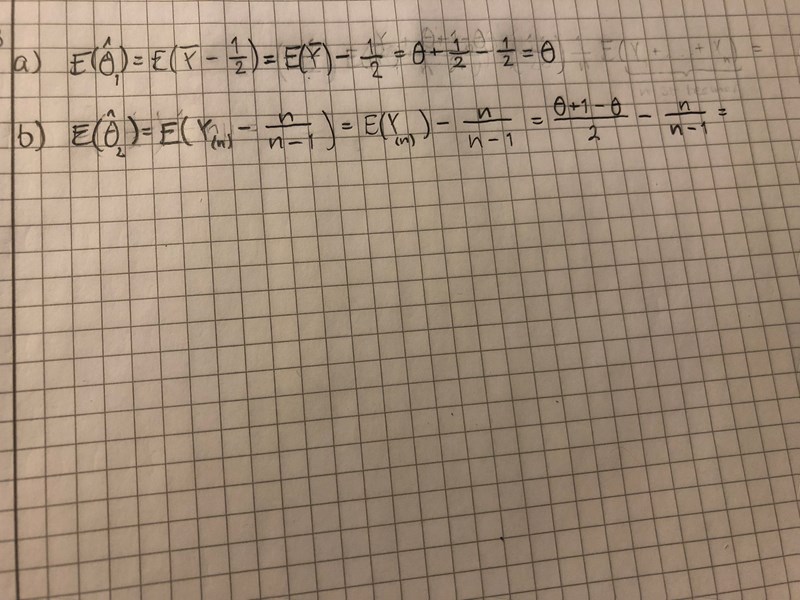 a) E(θ̂₁) = E(Y̅ - 1/2) = E(Y̅) - 1/2 = θ + 1/2 - 1/2 = θ
b) E(θ̂₂) = E(Y₍ₙ₎ - n/(n-1)) = E(Y₍ₙ₎) - n/(n-1) = (θ+1-θ)/2 - n/(n-1) =